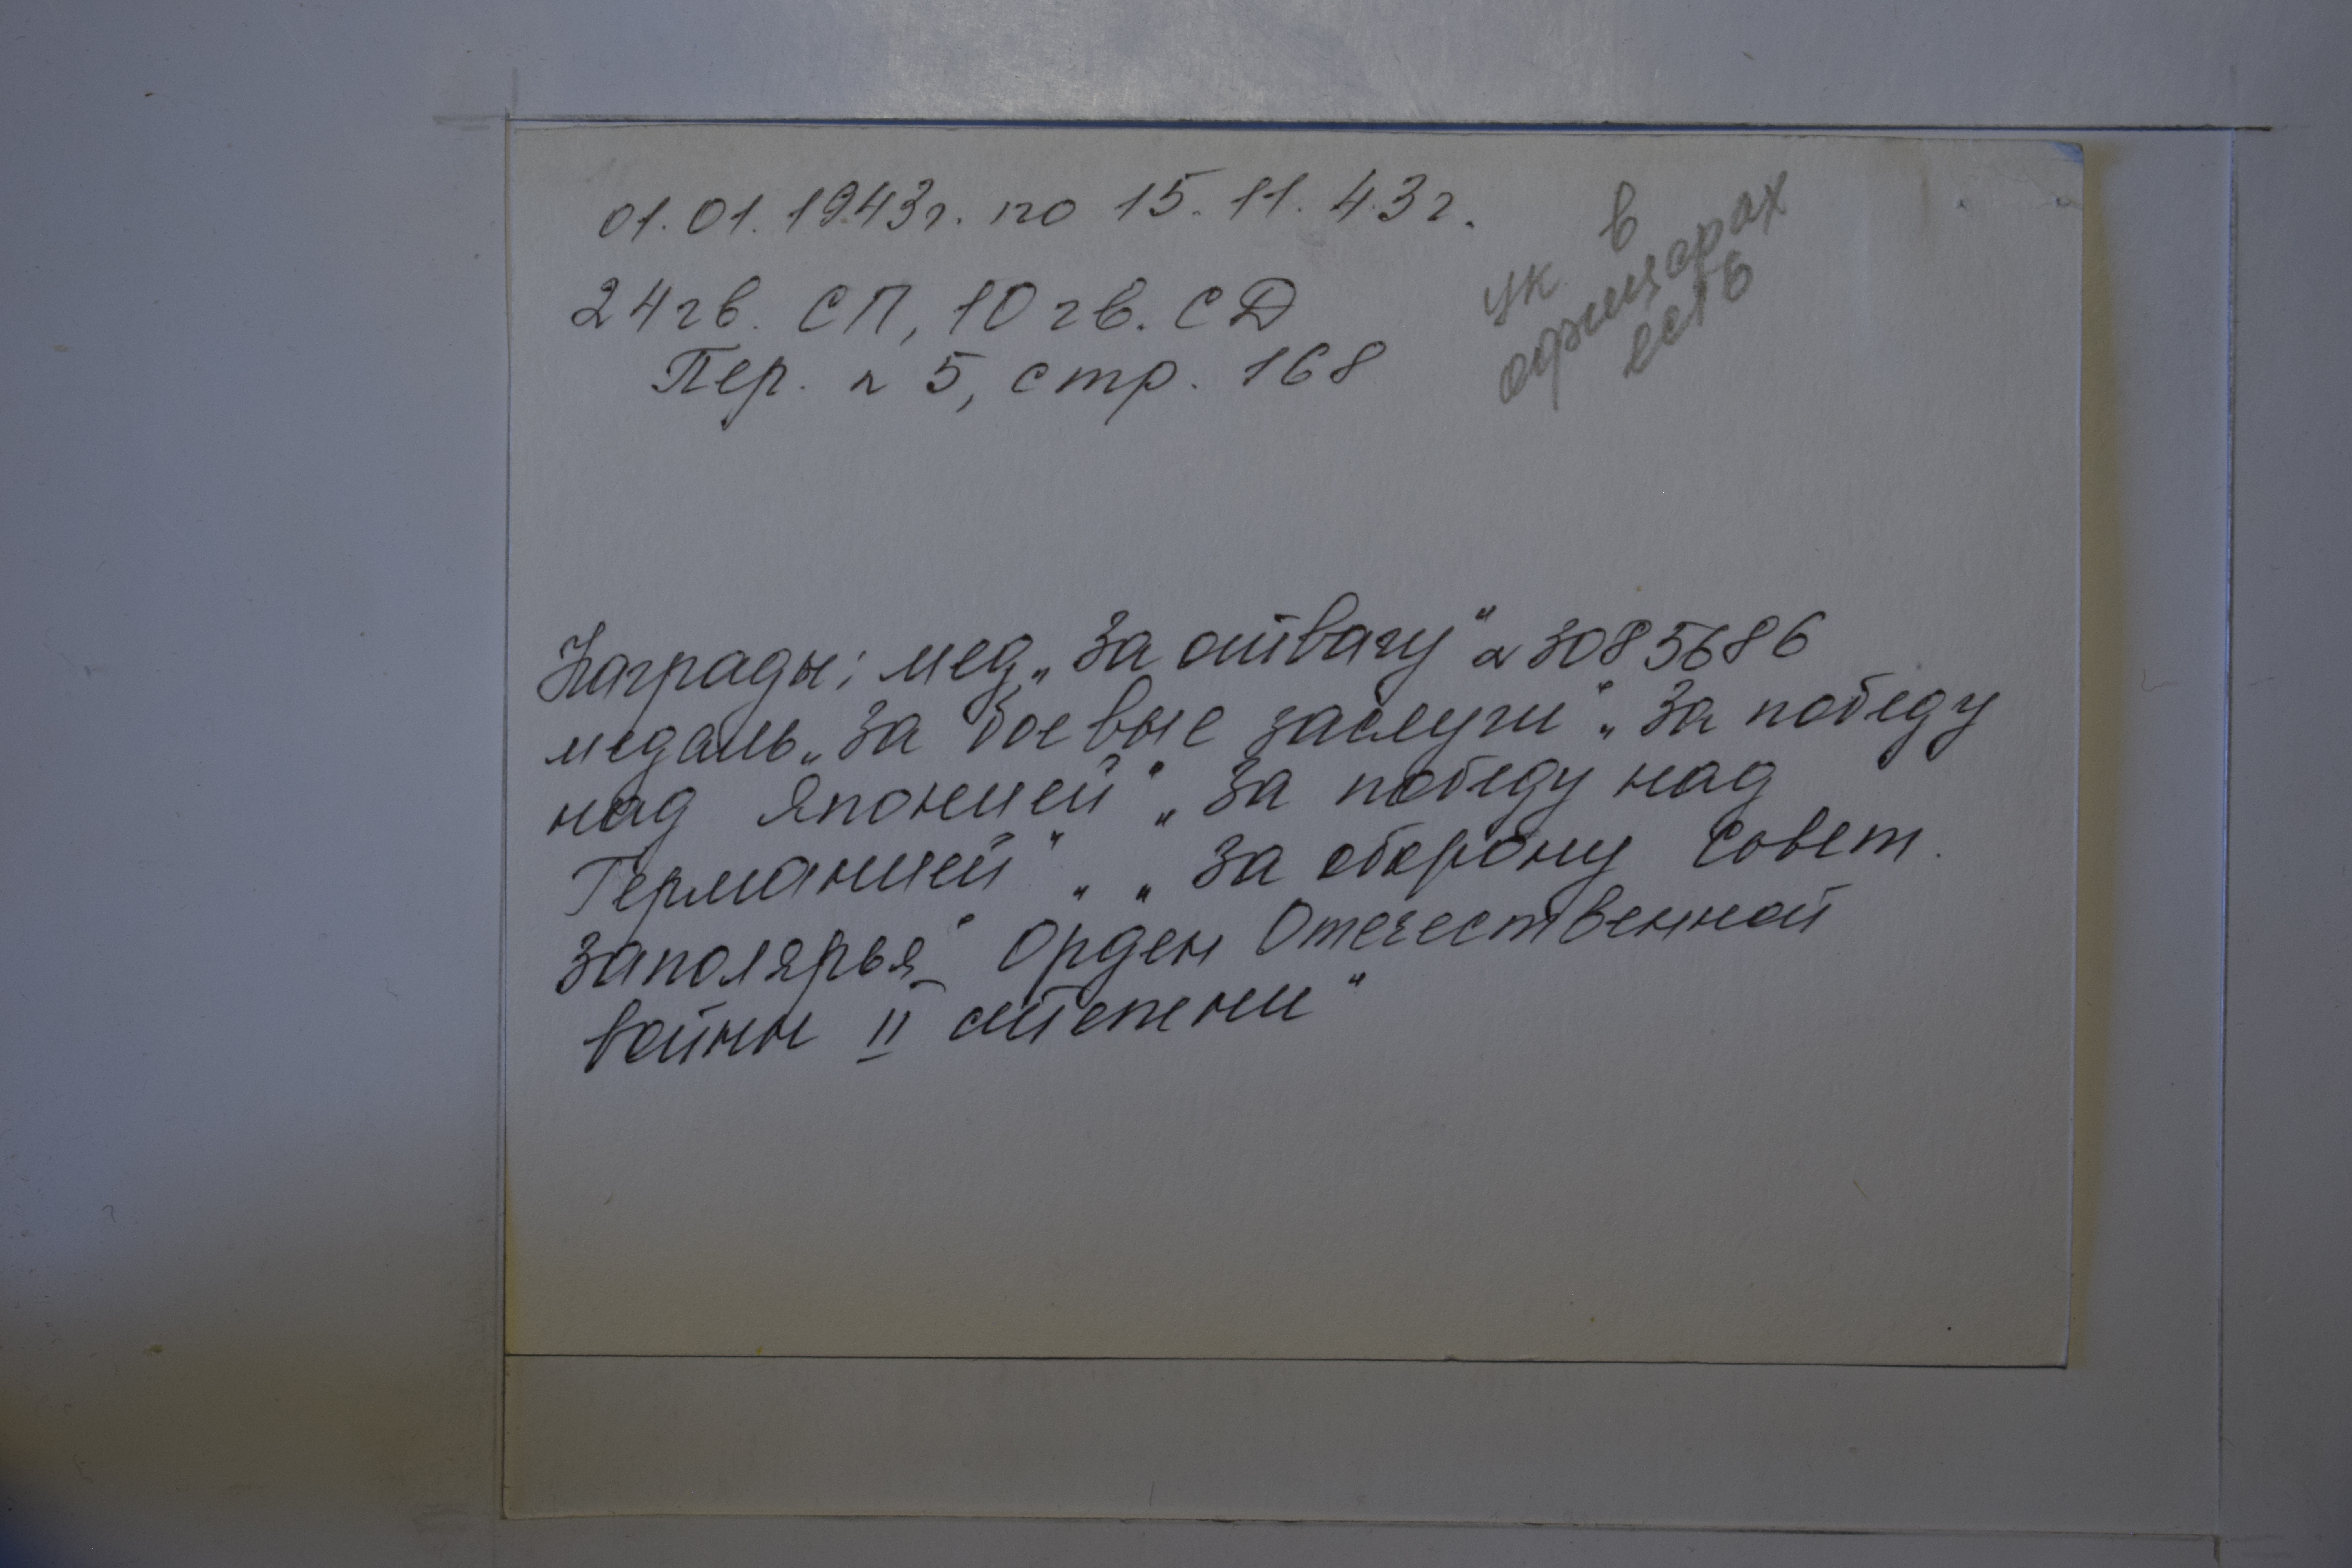 01.01.1943г. по 15.11.43г.
24гв. СП, 10гв. СД
Пер. № 5, стр. 168
УК в
офицерах
есть
Награды: мед. „За отвагу“ № 3085686
медаль „За боевые заслуги“ „За победу
над Японией“ „За победу над
Германией“ „ „За оборону Совет.
Заполярья“ Орден Отечественной
войны II степени“